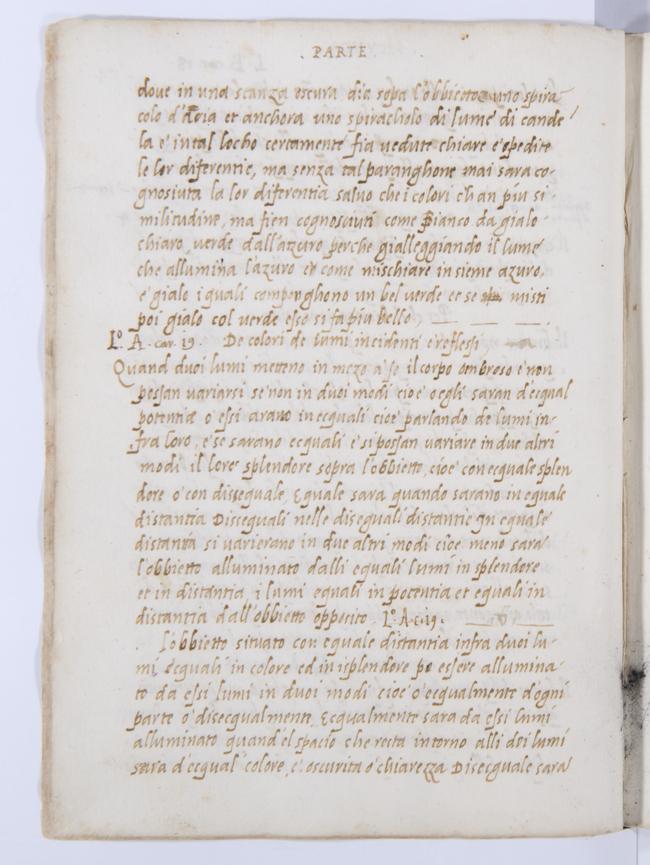 . PARTE .
doue in una stanza oscura dia sopa l'obbietto uno spira-
colo d'Aria et anchora uno spiracholo di lume di cande
la e in tal locho certamente fia uedute chiare e spedite
le lor diferentie, ma senza tal paranghone mai sara co-
gnosiuta la lor diferentia saluo che i colori ch an piu si-
militudine, ma fien cognosciuti come Bianco da gialo
chiaro, uerde dall'azzuro perche gialleggiando il lume
che allumina l'azuro er come mischiare insieme azuro,
e gialo i quali componghono un bel uerde et se misti
poi gialo col uerde esso si fa piu bello
L.º A. car. 19. De colori de lumi incidenti e reflessi
Quand duoi lumi metteno in mezo a se il corpo ombroso e non
possan uariarsi se non in duoi modi cioe o egli saran d'ecqual
potentia o essi arano inecquali cioe parlando de lumi in-
fra loro, e se sarano ecquali e si possan uariare in due altri
modi il lore splendore sopra l'obbietto, cioe con ecquale splen
dore o con diseguale, Eguale sara quando sarano in eguale
distantia Disseguali nelle diseguali distantie In equale
distantia si uarierano in due altri modi cioe meno sara
l'obbietto alluminato dalli equali lumi in splendore
et in distantia i lumi equali in potentia et equali in
distantia dall'obbietto opposito. L.º A. c. 19.
l'obbietto situato con equale distantia infra duoi lu-
mi Ecquali in colore ed in isplendore po essere allumina-
to da essi lumi in duoi modi cioe o ecqualmente d'ogni
parte o disecqualmente, Ecqualmente sara da essi lumi
alluminato quand'el spacio che resta intorno alli doi lumi
sara d'ecqual colore, e oscurita o chiarezza Disecquale sara